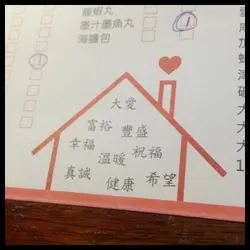 龍蝦丸
墨汁墨魚丸
海膽包
1
1
大愛
富裕 豐盛
幸福 溫暖 祝福
真誠 健康 希望